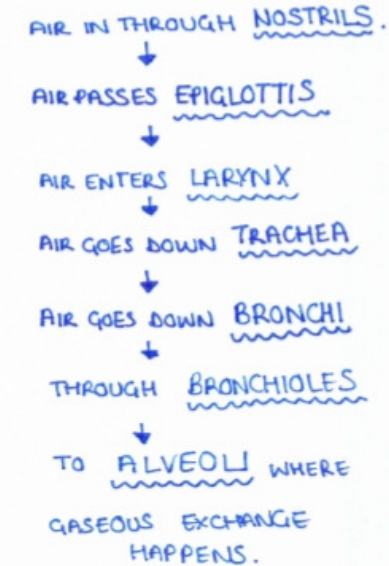 AIR IN THROUGH NOSTRILS.
AIR PASSES EPIGLOTTIS
AIR ENTERS LARYNX
AIR GOES DOWN TRACHEA
AIR GOES DOWN BRONCHI
THROUGH BRONCHIOLES
TO ALVEOLI WHERE
GASEOUS EXCHANGE
HAPPENS.